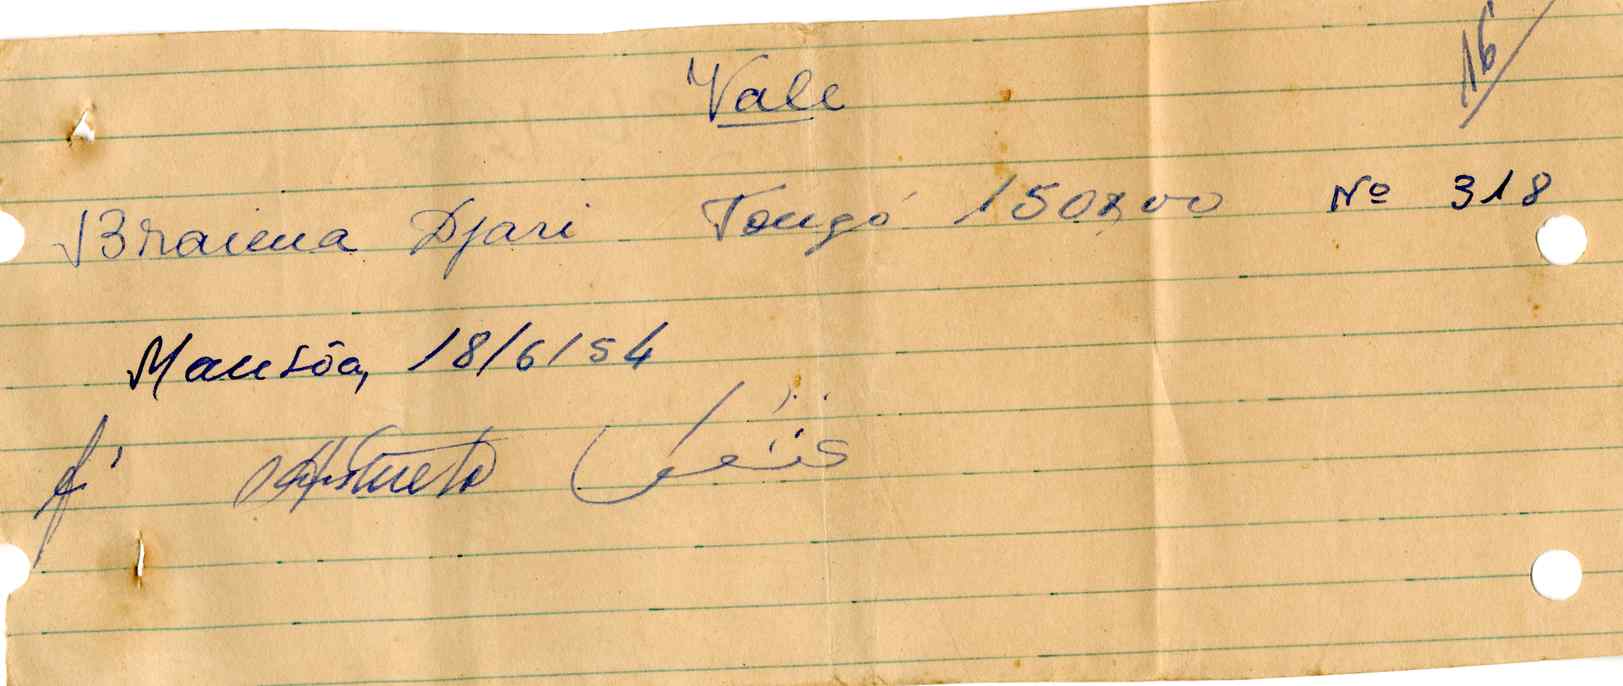 16
Vale
Braima Djari Tongó 150$00 Nº 318
Mansôa, 18/6/54